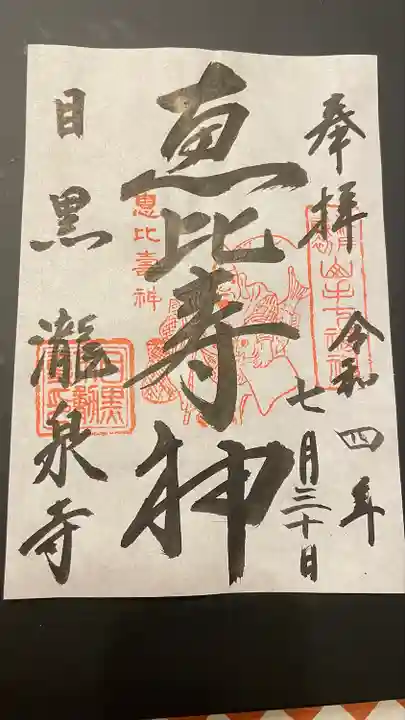 奉拝
令和四年
七月三十日
恵比寿神
恵比壽神
目黒
瀧泉寺